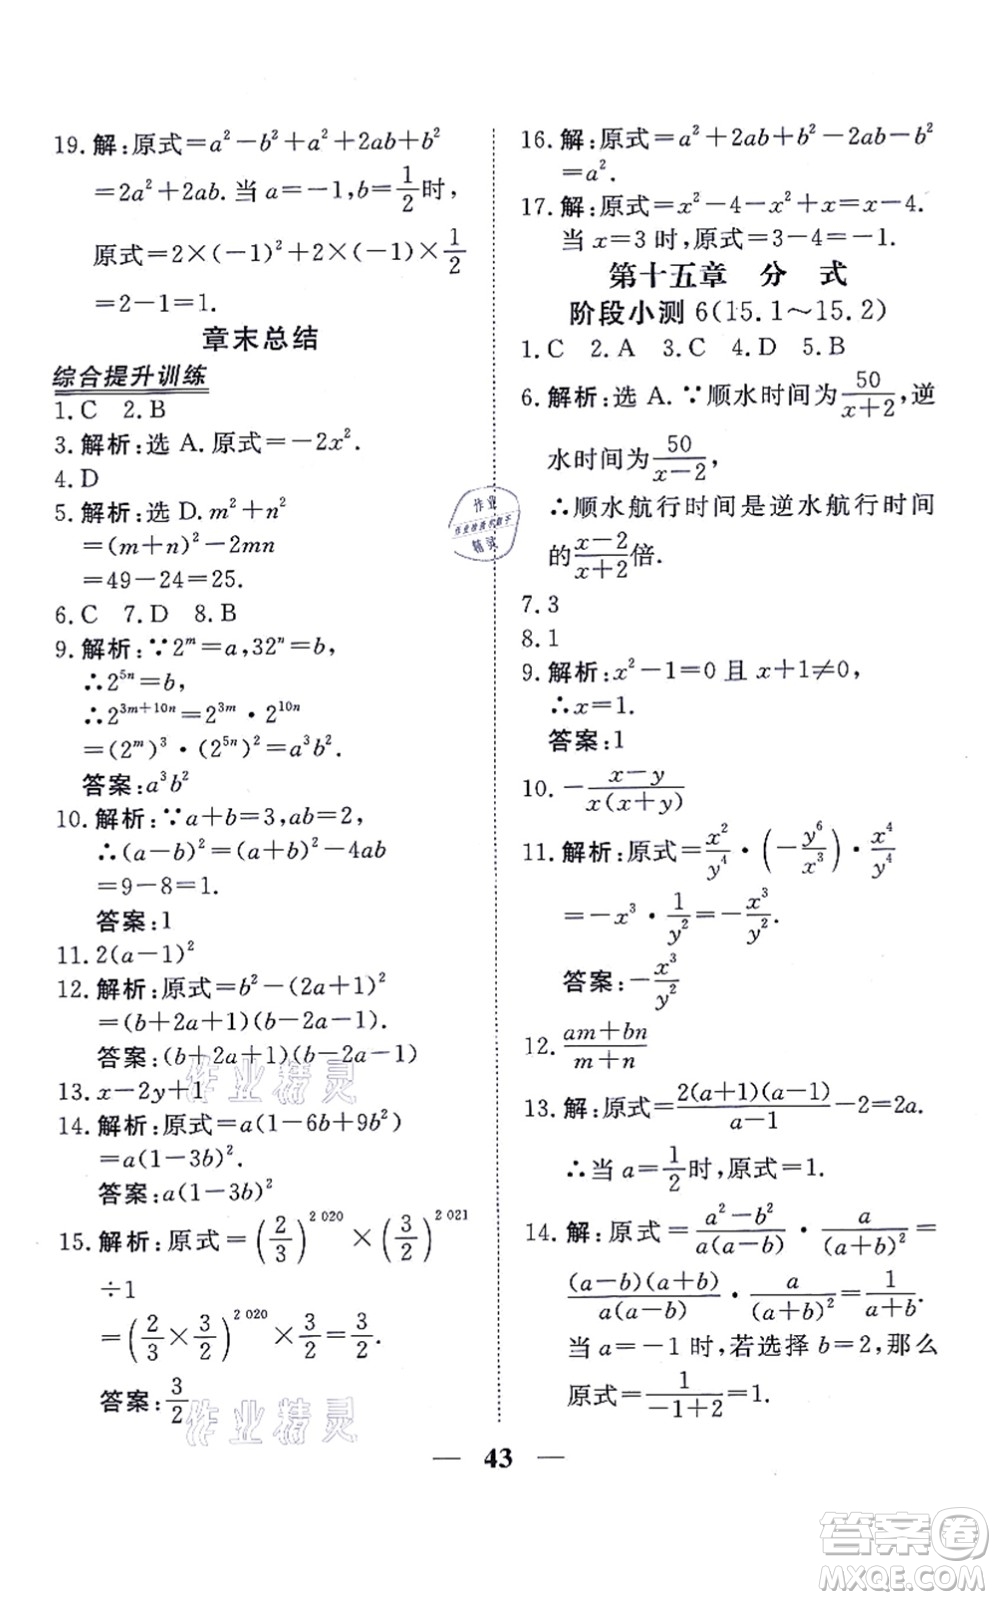 19. 解:原式=a²-b²+a²+2ab+b²
=2a²+2ab. 当 a=-1,b=1/2时,
原式=2×(-1)²+2×(-1)×1/2
=2-1=1.
章末总结
综合提升训练
1. C 2. B
3. 解析:选 A. 原式=-2x².
4. D
5. 解析:选 D. m²+n²
=(m+n)²-2mn
=49-24=25.
6. C 7. D 8. B
9. 解析:∵2ᵐ=a,32ⁿ=b,
∴2⁵ⁿ=b,
∴2³ᵐ⁺¹⁰ⁿ=2³ᵐ·2¹⁰ⁿ
=(2ᵐ)³·(2⁵ⁿ)²=a³b².
答案:a³b²
10. 解析:∵a+b=3,ab=2,
∴(a-b)²=(a+b)²-4ab
=9-8=1.
答案:1
11. 2(a-1)²
12. 解析:原式=b²-(2a+1)²
=(b+2a+1)(b-2a-1).
答案:(b+2a+1)(b-2a-1)
13. x-2y+1
14. 解析:原式=a(1-6b+9b²)
=a(1-3b)².
答案:a(1-3b)²
15. 解析:原式=(2/3)^2 020×(3/2)^2 021
÷1
=(2/3×3/2)^2 020×3/2=3/2.
答案:3/2
16. 解:原式=a²+2ab+b²-2ab-b²
=a².
17. 解:原式=x²-4-x²+x=x-4.
当 x=3 时,原式=3-4=-1.
第十五章 分 式
阶段小测 6(15.1~15.2)
1. C 2. A 3. C 4. D 5. D
6. 解析:选 A. ∵顺水时间为50/(x+2),逆
水时间为50/(x-2),
∴顺水航行时间是逆水航行时间
的(x-2)/(x+2)倍.
7. 3
8. 1
9. 解析:x²-1=0 且 x+1≠0,
∴x=1.
答案:1
10. -(x-y)/(x(x+y))
11. 解析:原式=x²/y⁴·(-y⁶/x³)·x⁴/y⁴
=-x³·1/y²=-x³/y².
答案:-x³/y²
12. (am+bn)/(m+n)
13. 解:原式=2(a+1)(a-1)/(a-1)-2=2a.
∴当 a=1/2时,原式=1.
14. 解:原式=(a²-b²)/(a(a-b))·a/(a+b)²=
(a-b)(a+b)/(a(a-b))·a/(a+b)²=1/(a+b).
当 a=-1 时,若选择 b=2,那么
原式=1/(-1+2)=1.
— 43 —
作业
精灵
作业精灵
作业精灵
答案卷
MXQE.COM